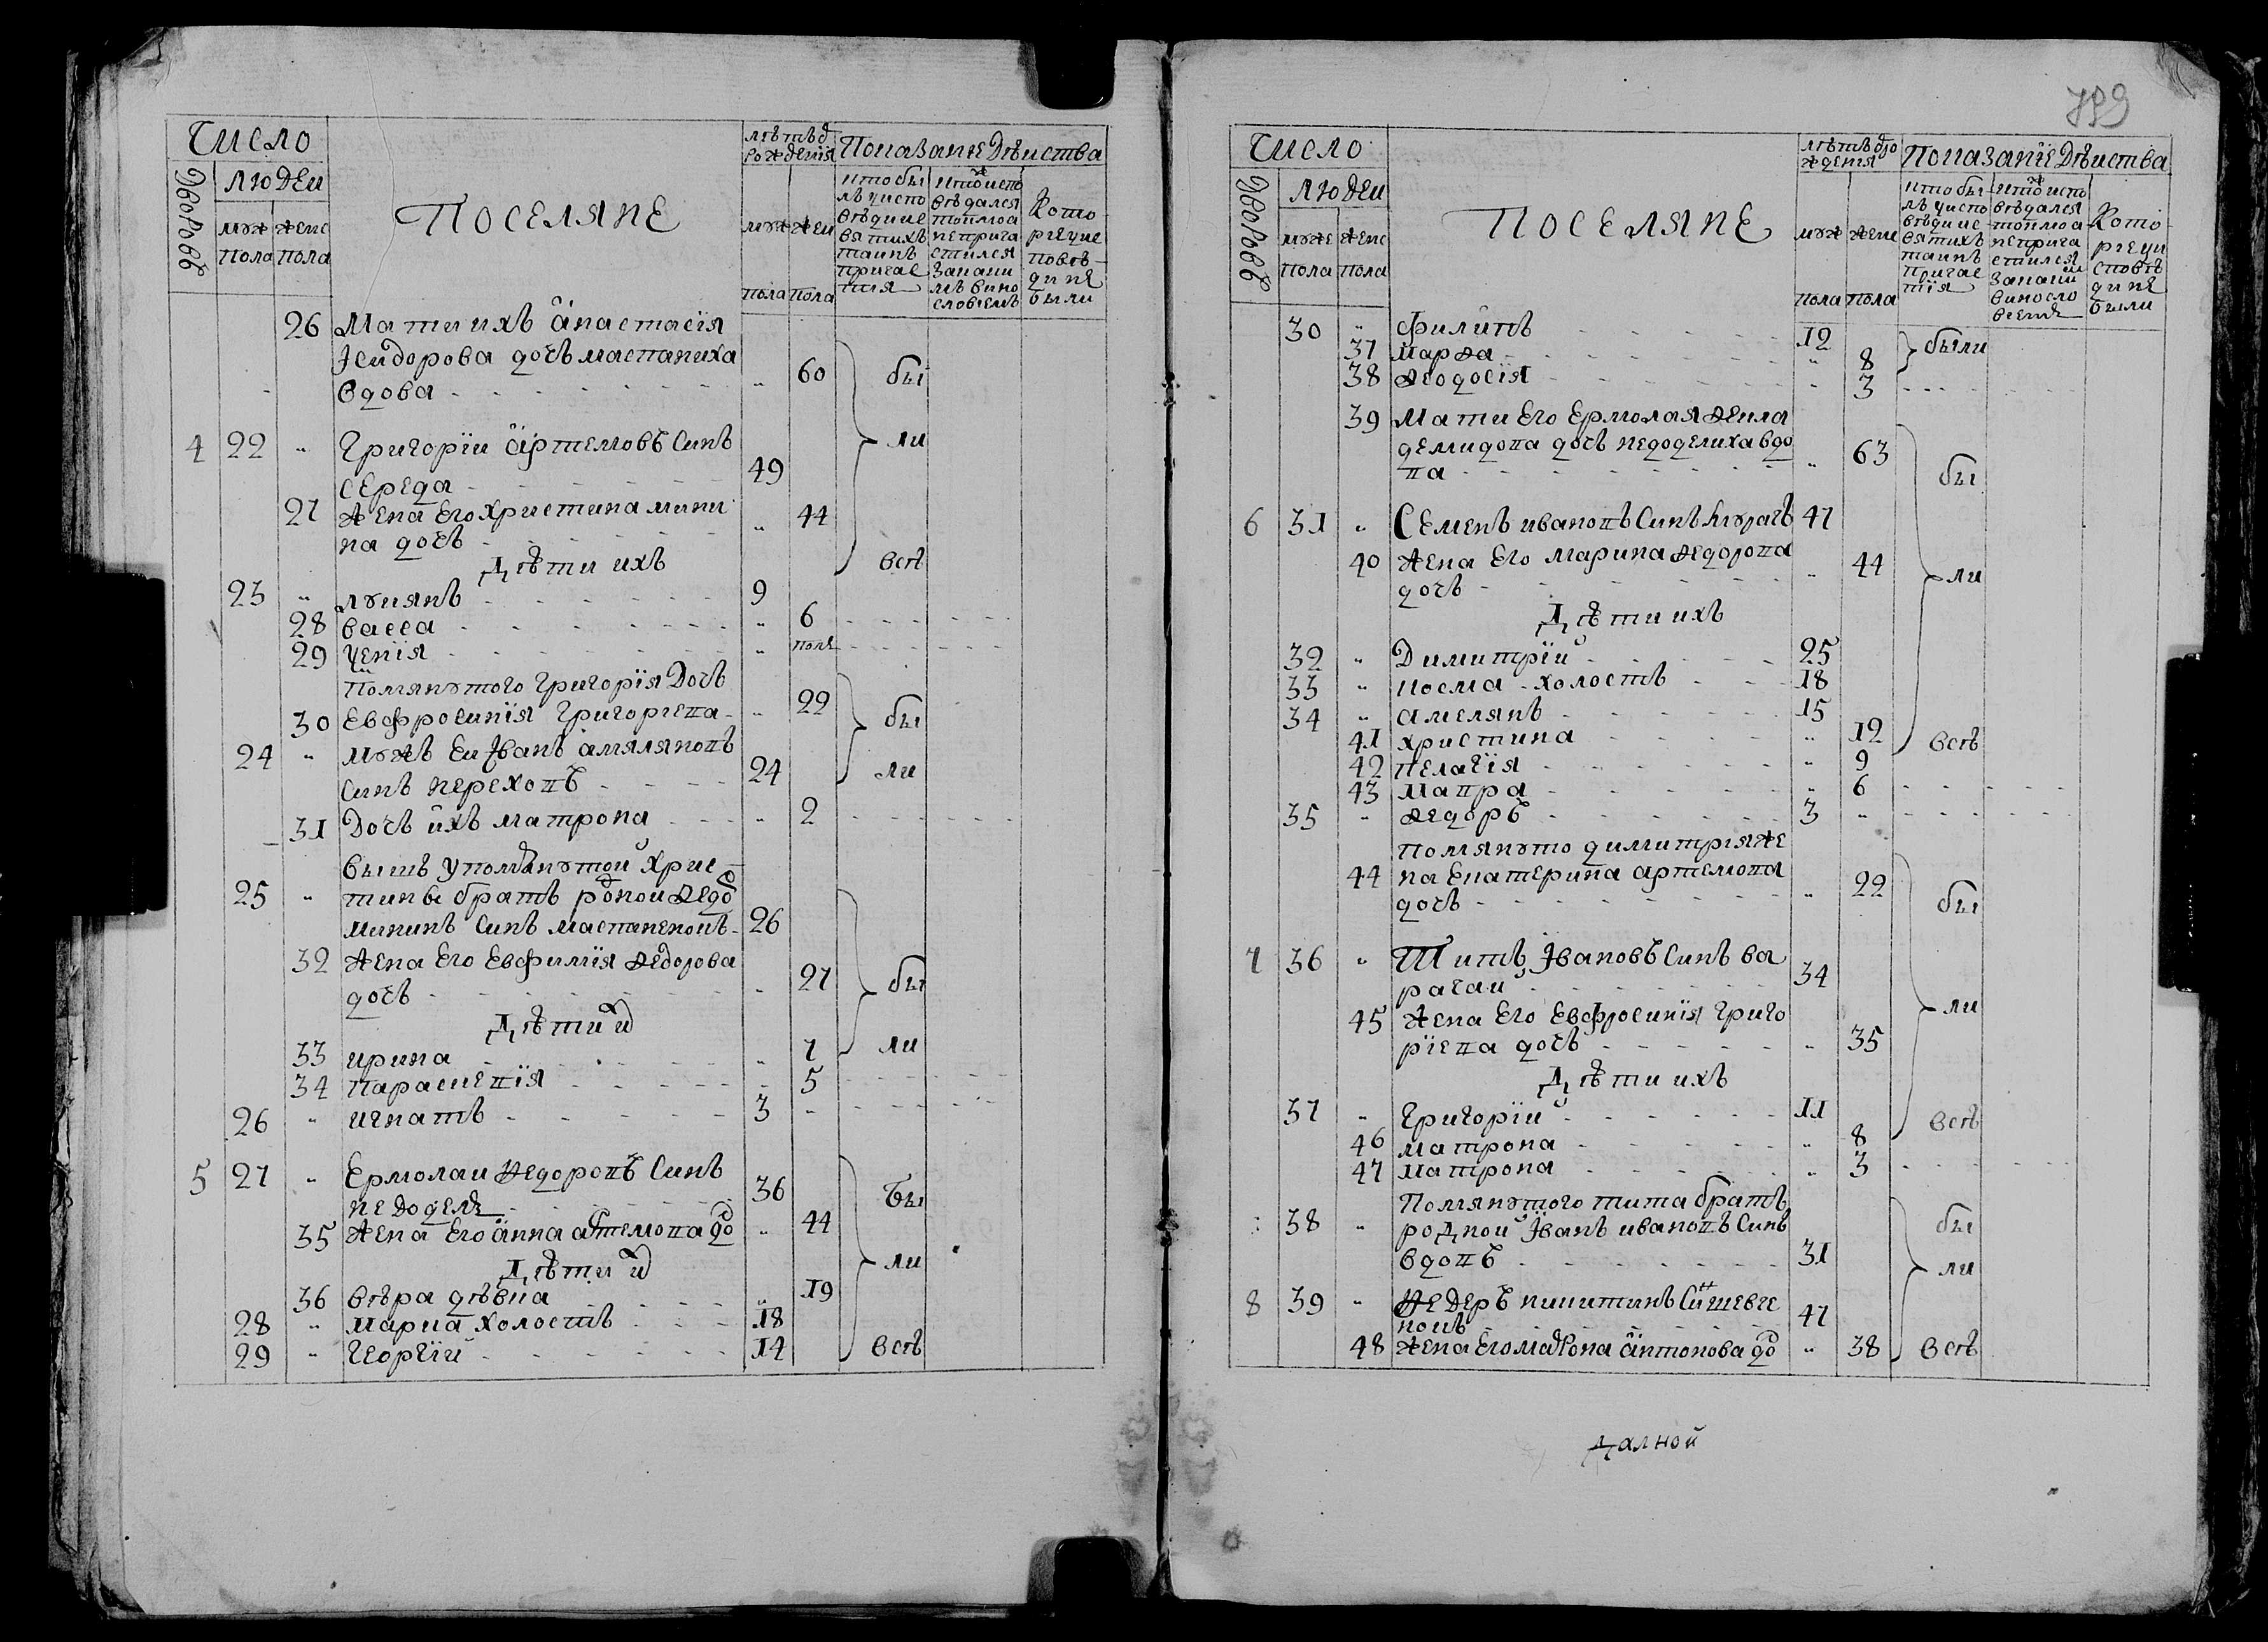 Число
Людеи
Дворовъ
муж
пола
женс
пола
ПОСЕЛЯНЕ
лѣтъ ѿ
рождения
муж
пола
жен
пола
Показание Дѣиства
кто бы
лъ у испо
вѣди и с
вятихъ
таинъ
причас
тия
кто испо
вѣдался
токмо а
не прича
стился
за каки
мъ вино
словіемъ
кото
рие у ис
повѣ
ди не
были
26 Мати ихъ анастасія
Ісидорова дочь мастаниха
вдова - - - - - „ 60 бы
4 22 „ Григоріи артемовъ синъ ли
середа - - - - - 49
27 жена его христина мини
на дочь - - - - - „ 44
Дѣти ихъ всѣ
23 „ лукянъ - - - - - 9
28 васса - - - - - „ 6
29 ... - - - - - „
помянутого григорія дочь
30 евфросинія григориева - „ 22 бы
24 „ мужъ еи Іванъ амяляновъ
синъ переховъ - - - - 24 ли
31 дочь ихъ матрона - - - „ 2
вышъ упомянутой хрис
25 „ тины братъ родной ѳедо
мининъ синъ мастаненокъ - 26
32 жена его евфимія ѳедорова
дочь - - - - - „ 27 бы
Дѣти и
33 ирина - - - - - „ 7 ли
34 параскевія - - - - - „ 5
26 „ игнатъ - - - - - 3 „
5 27 „ Ермолаи ѳедоровъ синъ
недоделе - - - - - 36 Бы
35 жена его анна артемова до „ 44
Дѣти и ли
36 вѣра дѣвка - - - - „ 19
28 „ марка холостъ - - - 18
29 „ георгій - - - - - 14 всѣ
799
Число
Людеи
Дворовъ
муже
пола
женс
пола
ПОСЕЛЯНЕ
лѣтъ ѿ ро
ждения
муж
пола
жен
пола
Показание Дѣиства
кто бы
лъ у испо
вѣди и с
вятихъ
таинъ
причас
тія
кто испо
вѣдался
токмо а
не прича
стился
за каким
винosло
виемъ
кото
рие у и
сповѣ
ди не
были
30 „ филипъ - - - - - 12
37 марѳа - - - - - „ 8 были
38 ѳеодосія - - - - - „ 3
39 Мати его ермолая ѳекла
демидова дочь недоделиха вдо
ва - - - - - „ 63 бы
6 31 „ Семенъ ивановъ синъ кугачъ 47
40 жена его марина ѳедорова
дочь - - - - - „ 44 ли
Дѣти ихъ
32 „ Димитрій - - - - - 25
33 „ косма - холостъ - - 18
34 „ амелянъ - - - - - 15
41 христина - - - - - „ 12 всѣ
42 пелагія - - - - - „ 9
43 мавра - - - - - „ 6
35 „ ѳедоръ - - - - - 3 „
помянуто димитрия же
44 на екатерина артемова
дочь - - - - - „ 22 бы
7 36 „ Титъ Івановъ синъ ва
рагаи - - - - - 34
45 жена его евфросинія григо ли
ріева дочь - - - - - „ 35
Дѣти ихъ
37 „ Григорій - - - - - 11 всѣ
46 матрона - - - - - „ 8
47 матрона - - - - - „ 3
помянутого тита братъ
38 „ родной Іванъ ивановъ синъ бы
вдовъ - - - - - 31 ли
8 39 „ Ѳедеръ никитинъ синъ шевче
нокъ - - - - - 47
48 жена его матрона антонова до „ 38 всѣ
далной